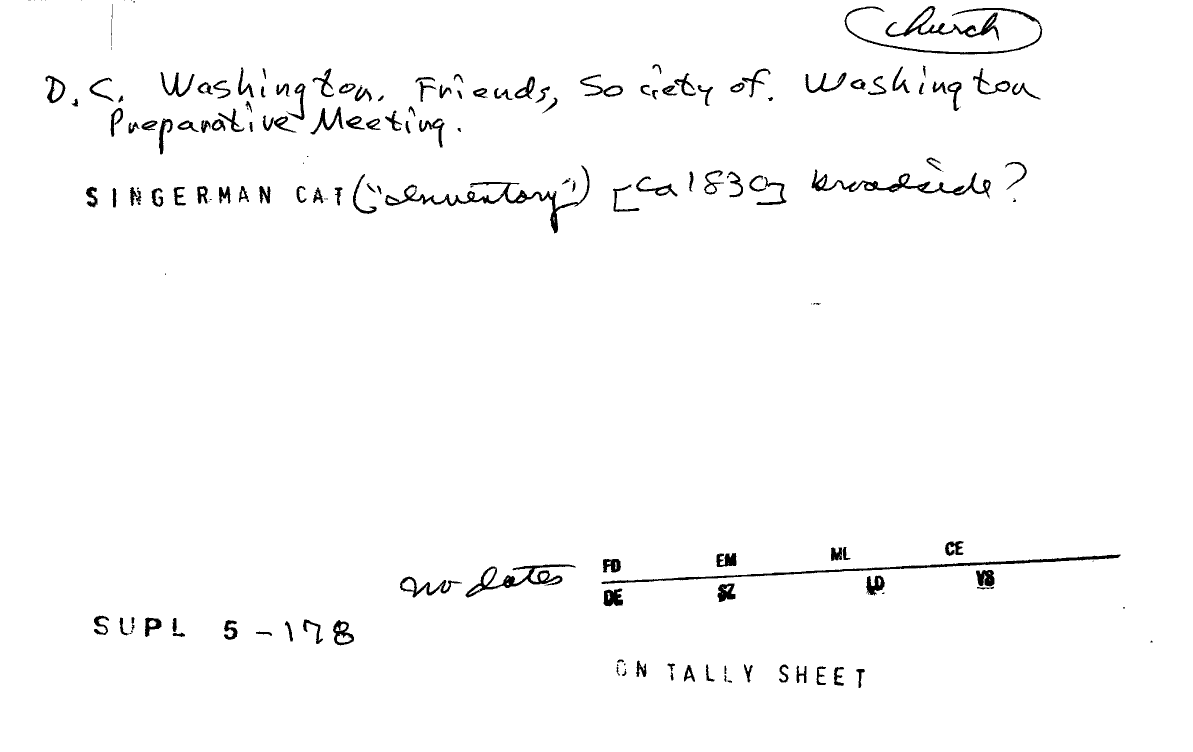 church
D.C. Washington. Friends, Society of. Washington
Preparative Meeting.
SINGERMAN CAT ("Inventory") [ca 1830] broadside?
FD EM ML CE
no dates
DE SZ LD VS
SUPL 5-178
ON TALLY SHEET